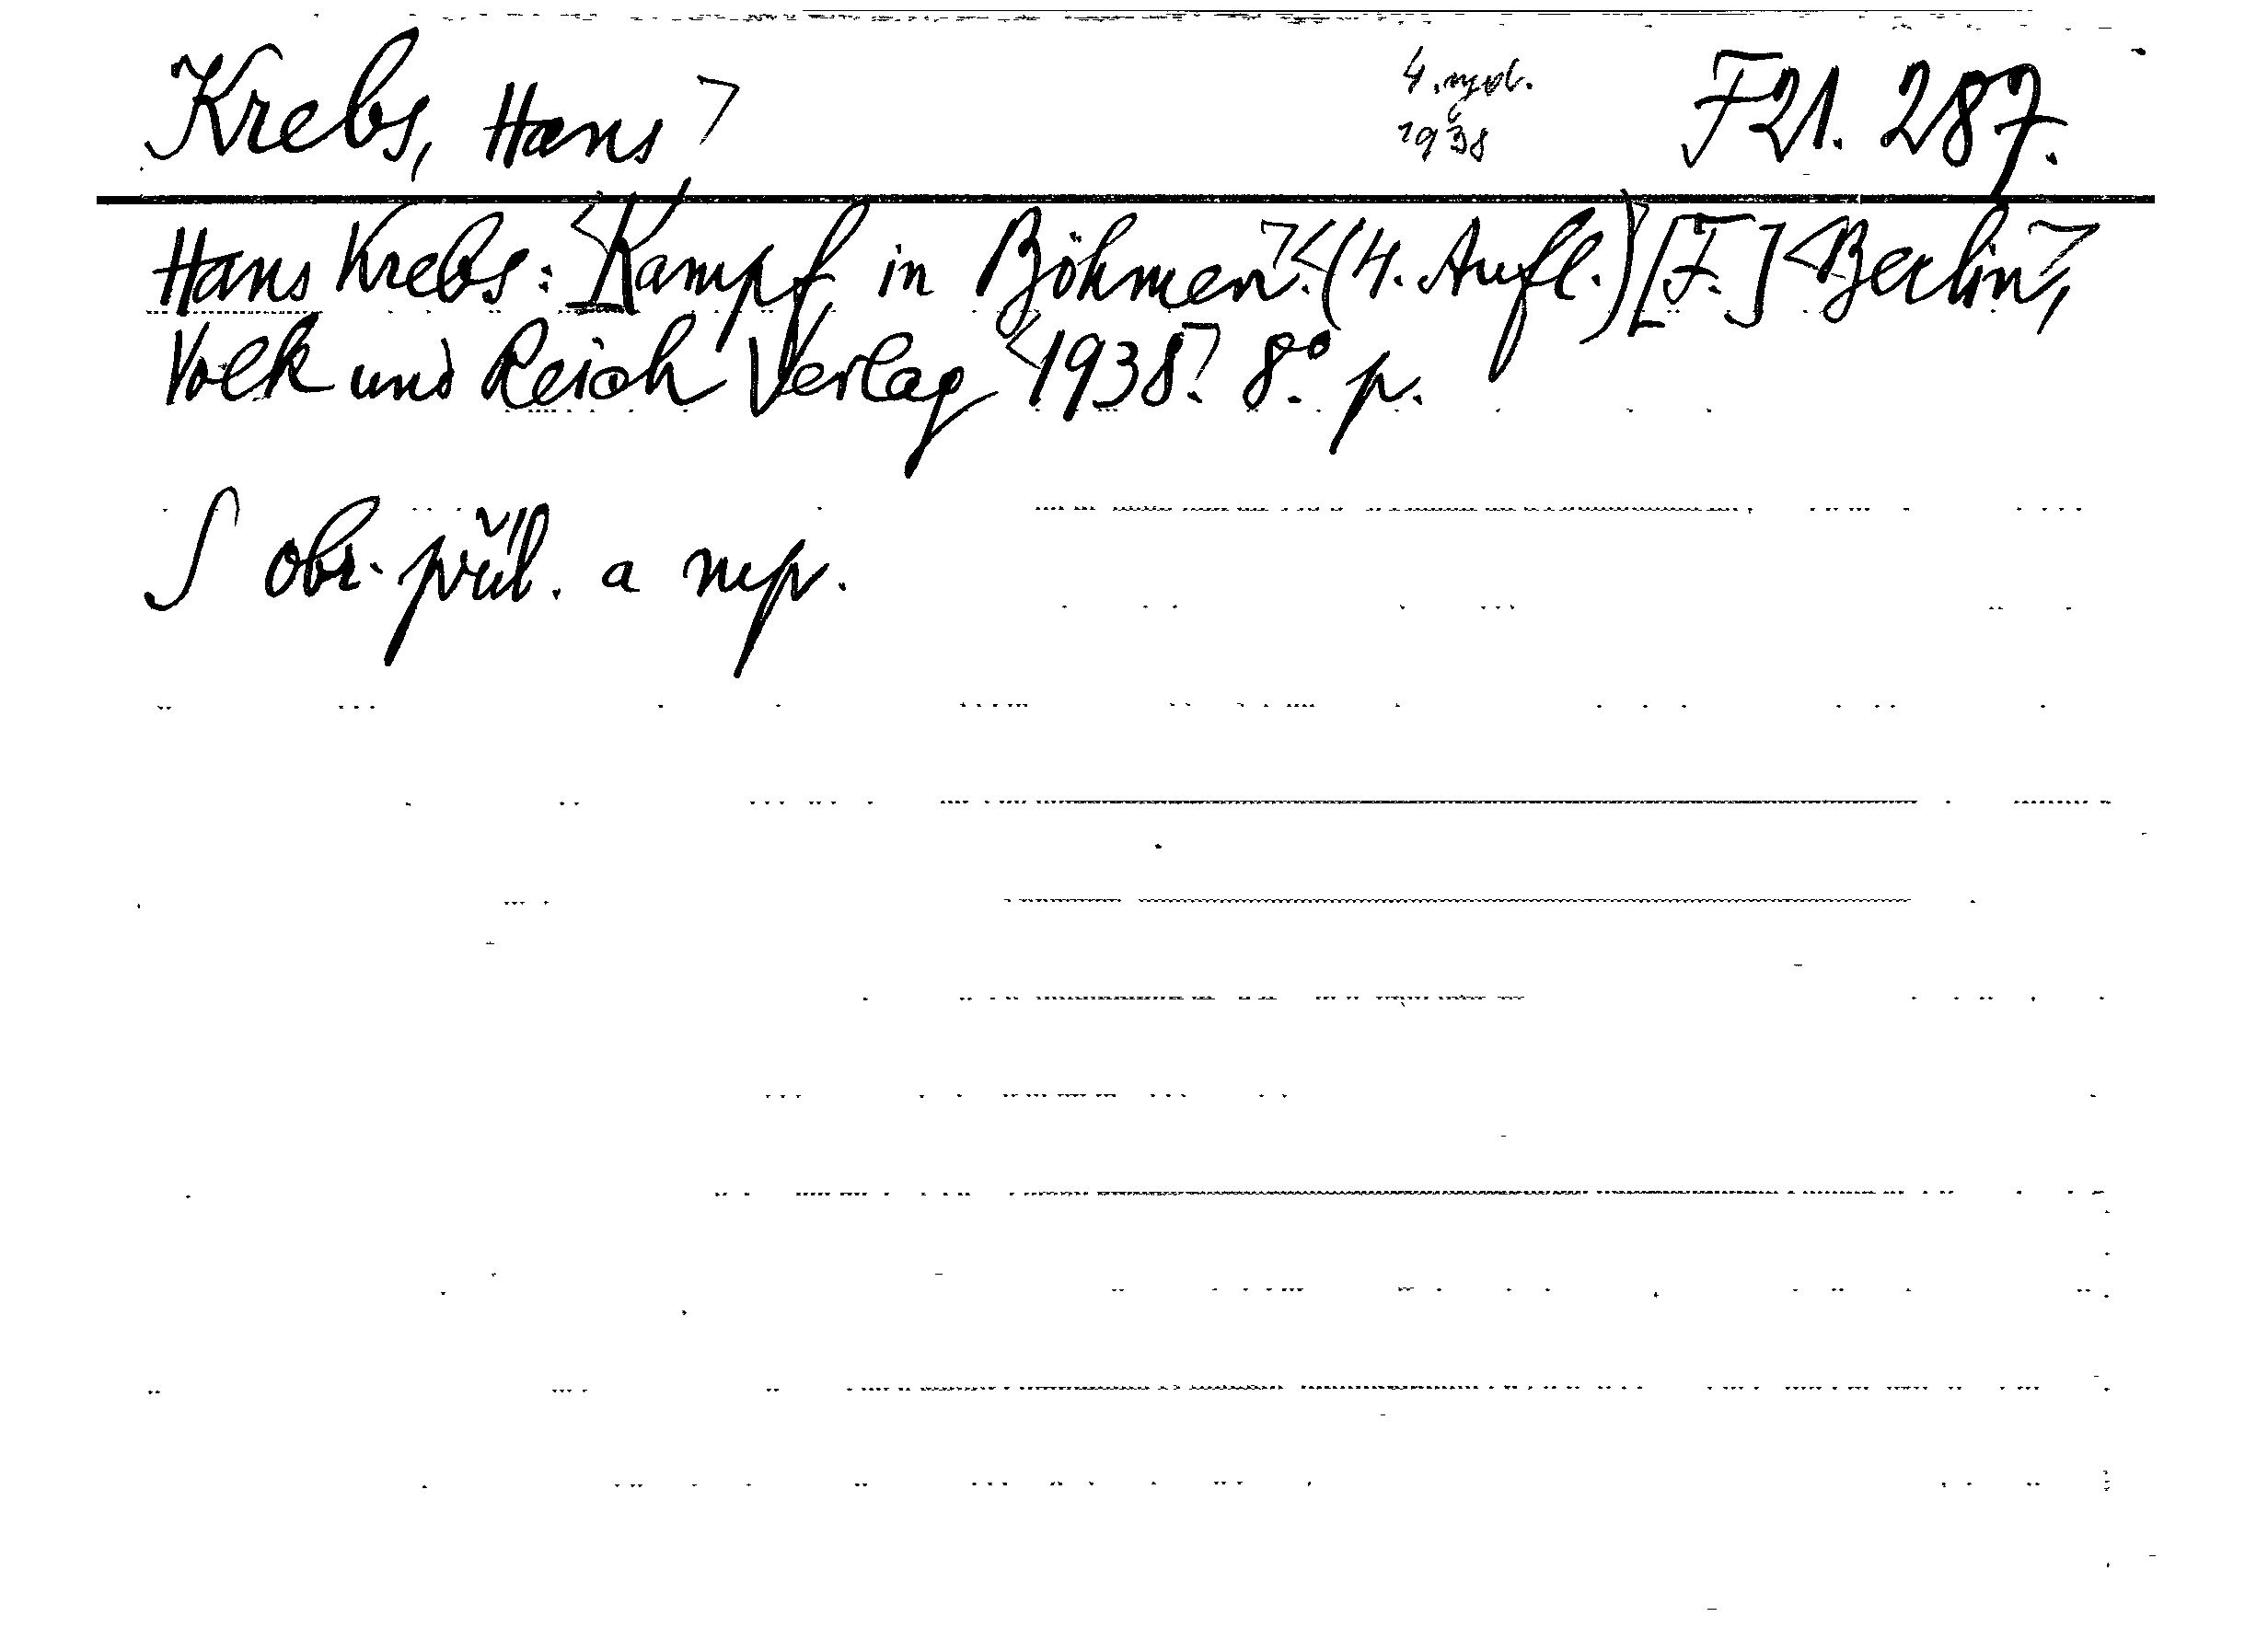 Krebs, Hans 4. vyd. F 21. 287.
1938
Hans Krebs: Kampf in Böhmen. (4. Aufl.) [F.] Berlin,
Volk und Reich Verlag 1938. 8° p.
S obr. příl. a